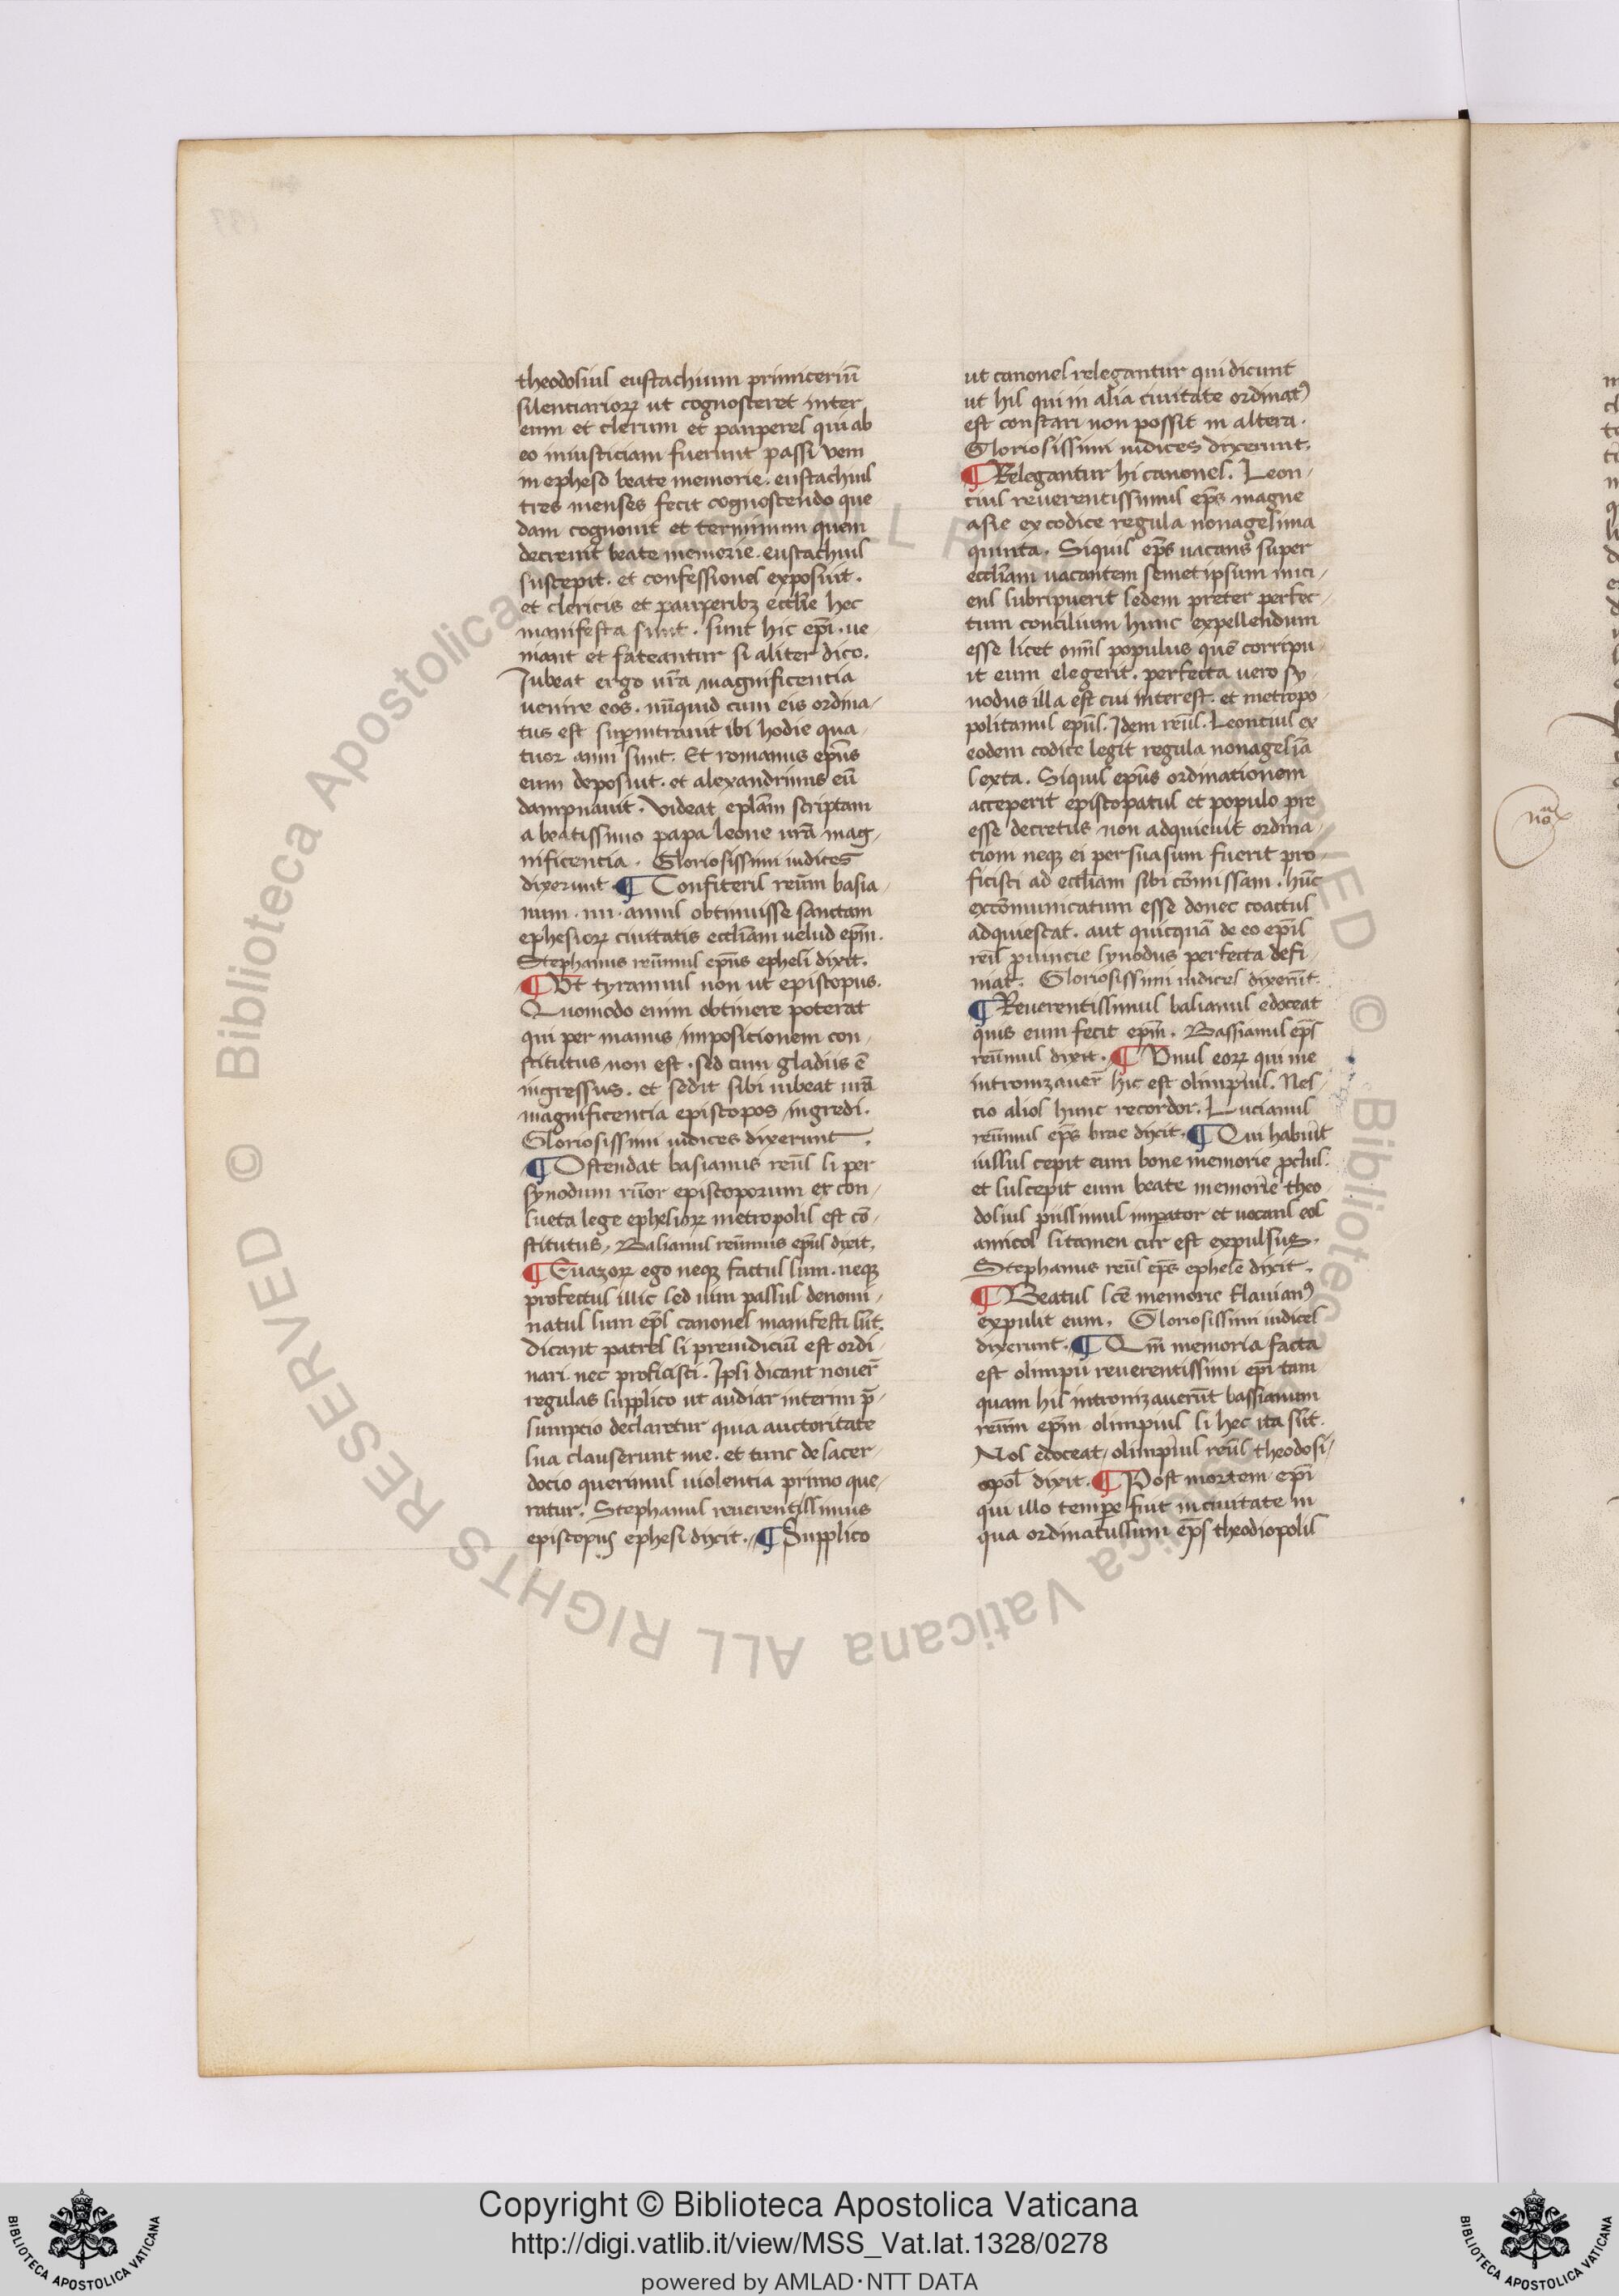 theodosius eustachium primiceriū
silenciarioꝝ ut cognosceret inter
eum et clerum et pauperes qui ab
eo iniusticiam fuerunt passi vem
in epheso beate memorie. eustachius
tres menses fecit cognoscendo que
dam cognouit et terminum quem
decreuit beate memorie. eustachius
suscepit. et confessiones exposuit.
et clericis et pauperibꝫ ecclīe hec
manifesta sunt. sunt hic epī. ue
niant et fateantur si aliter dico.
Jubeat ergo ur̄a magnificentia
uenire eos. nūquid cum eis ordina/
tus est suꝑintrauit ibi hodie qua/
tuor anni sunt. Et romanus epūs
eum deposuit. et alexandrinus eū
dampnauit. Videat eplām scriptam
a beatissimo papa leone urā mag/
nificencia. Gloriosissimi iudices
dixerunt ¶ Confiteris reūm basia/
num. iiii. annis obtinuisse sanctam
ephesioꝝ ciuitatis eccliam uelud epm̄.
Stephanus reūmus epūs ephesi dixit.
¶ Vt tyrannus non ut episcopus.
Quomodo enim obtinere poterat
qui per manus impositionem con/
stitutus non est. sed cum gladiis ē
ingressus. et sedit sibi iubeat urā
magnificencia episcopos ingredi.
Gloriosissimi iudices dixerunt.
¶ Ostendat basianus reūs si per
synodum episcoporum et con/
sueta lege ephesioꝝ metropolis est cō/
stitutus. Basianus reūmus epūs dixit.
¶ Euazoꝝ ego neqꝫ factus sum. neqꝫ
profectus illic sed uim passus denomi/
natus sum ep̄s canones manifesti sūt.
dicant patres si preiudiciū est ordi/
nari nec proficisci. Ipsi dicant nouer̄
regulas supplico ut audiar interim p̄/
sumpcio declaretur quia auctoritate
sua clauserunt me. et tunc de sacer/
docio querimus uiolentia primo que/
ratur. Stephanus reuerentissimus
episcopus ephesi dixit. ¶ Supplico
ut canones relegantur qui dicunt
ut his qui in alia ciuitate ordinatꝰ
est constari non possit in altera.
Gloriosissimi iudices dixerunt.
¶ Relegantur hi canones. Leon/
cius reuerentissimus ep̄s magne
asie ex codice regula nonagesima
quinta. Siquis ep̄s uacans super
eccliam uacantem semetipsum inici/
ens subripuerit sedem preter perfec/
tum concilium hunc expellendum
esse licet omīs populus quē corripu/
it eum elegerit. perfecta uero sy/
nodus illa est cui interest. et metropo/
politanus epūs. Idem reūs. Leoncius ex
eodem codice legit regula nonagesīa
sexta. Siquis epūs ordinationem
acceperit episcopatus et populo pre
esse decretus non adquieuit ordina/
tiom neqꝫ ei persuasum fuerit pro/
ficisci ad eccliam sibi cōmissam. hūc
excōmunicatum esse donec coactus
adquiescat. aut quicquā de eo epīs
reīs ꝓuincie synodus perfecta defi/
niat. Gloriosissimi iudices dixerūt.
¶ Reuerentissimus basianus edoceat
quis eum fecit epm̄. Bassianus ep̄s
reūmus dixit. ¶ Vnus eoꝝ qui me
intronizauer̄ hic est olimpius. Nes/
cio alios hunc recordor. Lucianus
reūmus ep̄s brae dixit. ¶ Qui habuit
iussus cepit eum bone memorie ꝓclus.
et suscepit eum beate memorie theo/
dosius piissimus impator et uocans eos
amicos si tamen cur est expulsus.
Stephanus reūs ep̄s ephese dixit.
¶ Beatus scē memorie flauianꝰ
expulit eum. Gloriosissimi iudices
dixerunt. ¶ Qm̄ memoria facta
est olimpii reuerentissimi epī tam
quam his intronizauerūt bassianum
reūm epm̄ olimpius si hec ita sūt.
Nos edoceat olimpius reūs theodosi/
opol̄ dixit. ¶ Post mortem epī
qui illo tempe fuit in ciuitate in
qua ordinatus sum ep̄s theodiopolis
nōa
Copyright © Biblioteca Apostolica Vaticana
http://digi.vatlib.it/view/MSS_Vat.lat.1328/0278
powered by AMLAD·NTT DATA
BIBLIOTECA APOSTOLICA VATICANA
BIBLIOTECA APOSTOLICA VATICANA
© Biblioteca Apostolica Vaticana ALL RIGHTS RESERVED
© Biblioteca Apostolica Vaticana ALL RIGHTS RESERVED